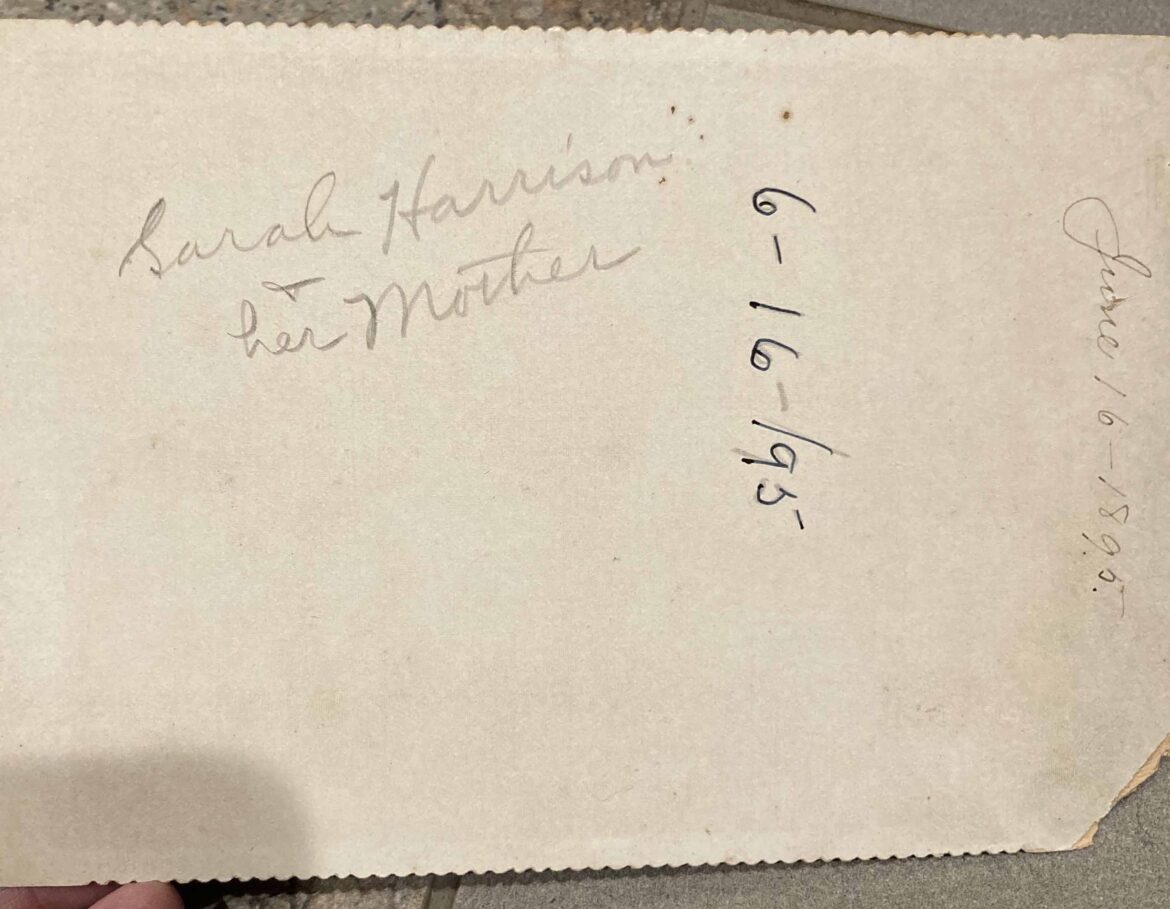 Sarah Harrison
+
her Mother
6-16-/95
June 16-1895.